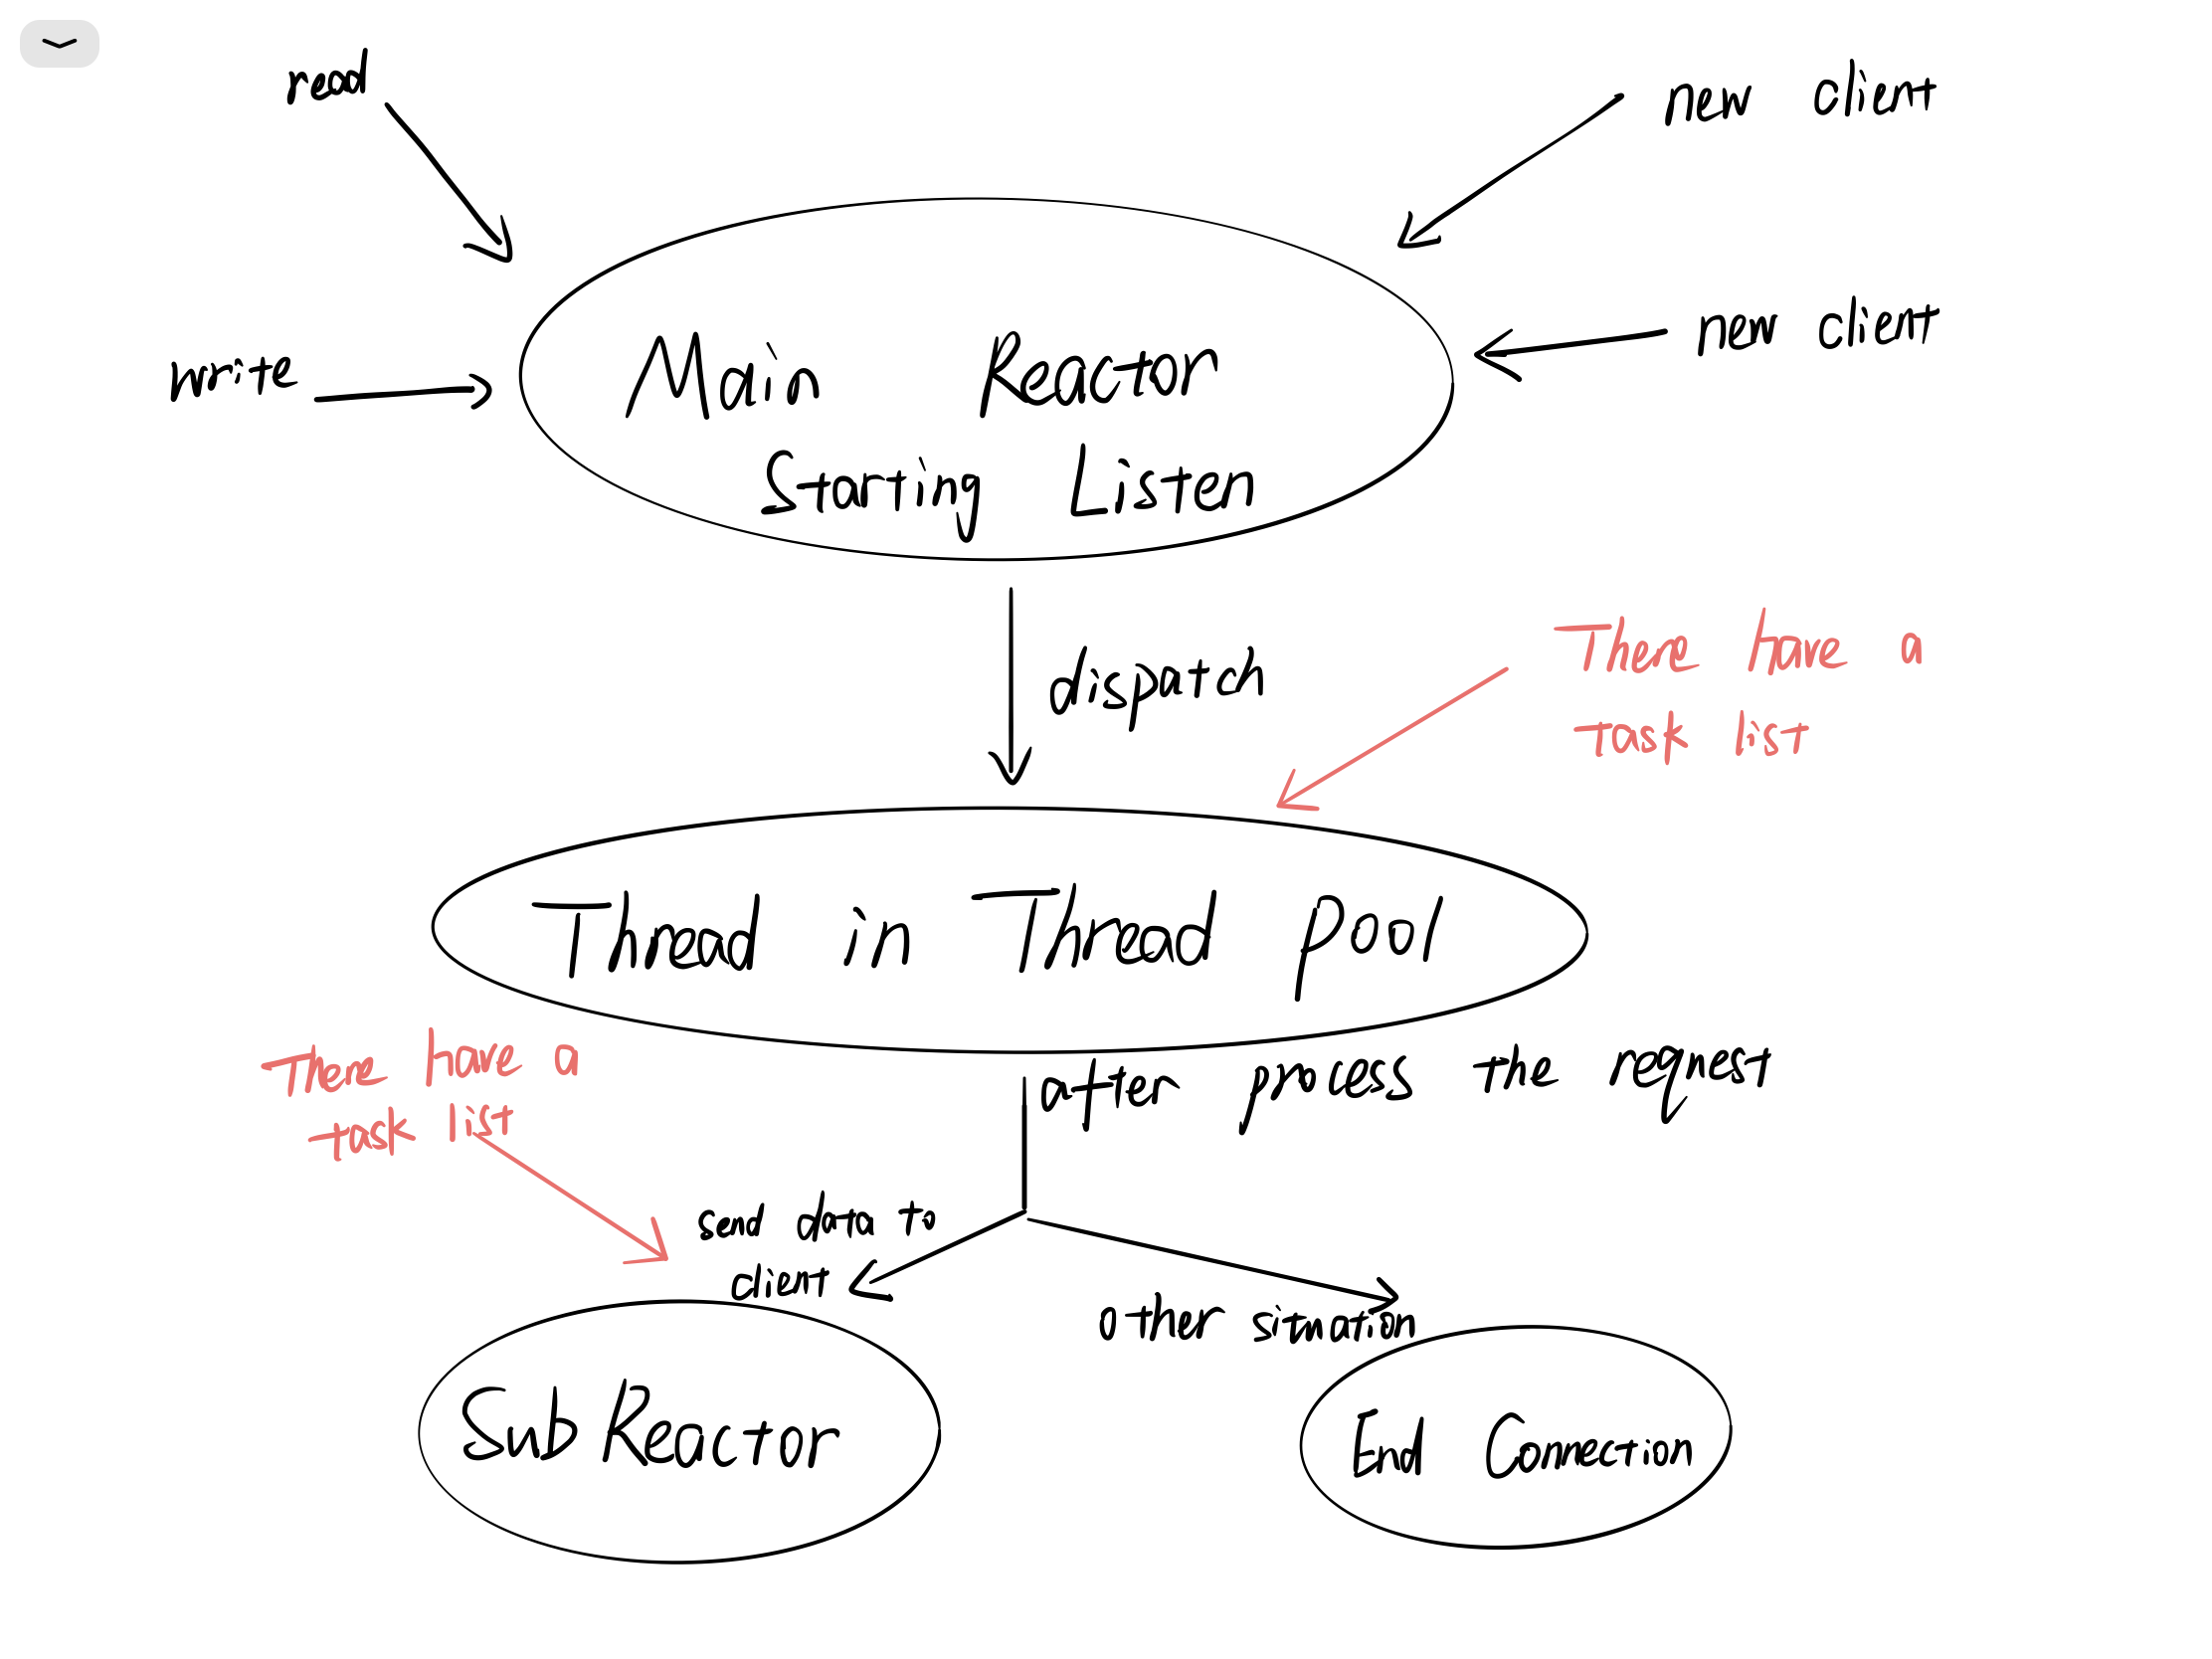 read
new client
write
new client
Main Reactor
Starting Listen
dispatch
There have a
task list
Thread in Thread pool
There have a
task list
after process the request
send data to
client
other situation
Sub Reactor
End Connection